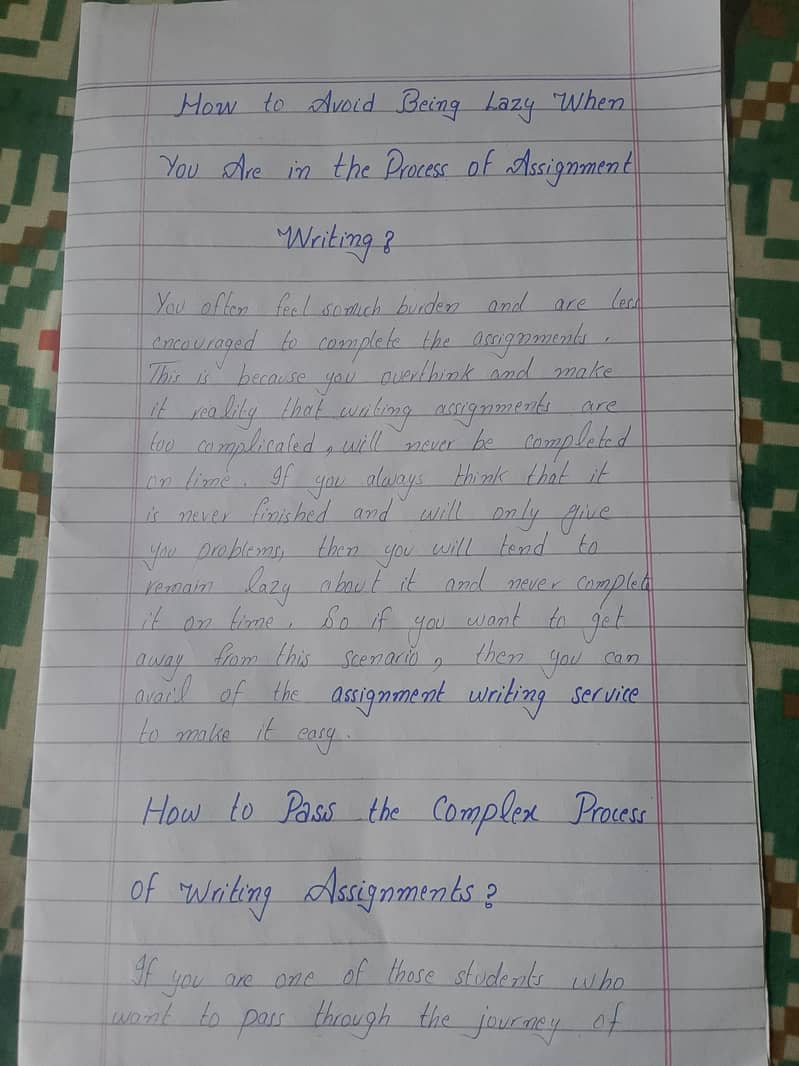 How to Avoid Being Lazy When
You Are in the Process of Assignment
Writing?
You often feel somuch burden and are less
encouraged to complete the assignments.
This is because you overthink and make
it reality that writing assignments are
too complicated, will never be completed
on time. If you always think that it
is never finished and will only give
you problems, then you will tend to
remain lazy about it and never complete
it on time. So if you want to get
away from this scenario, then you can
avail of the assignment writing service
to make it easy.
How to Pass the Complex Process
of Writing Assignments?
If you are one of those students who
want to pass through the journey of